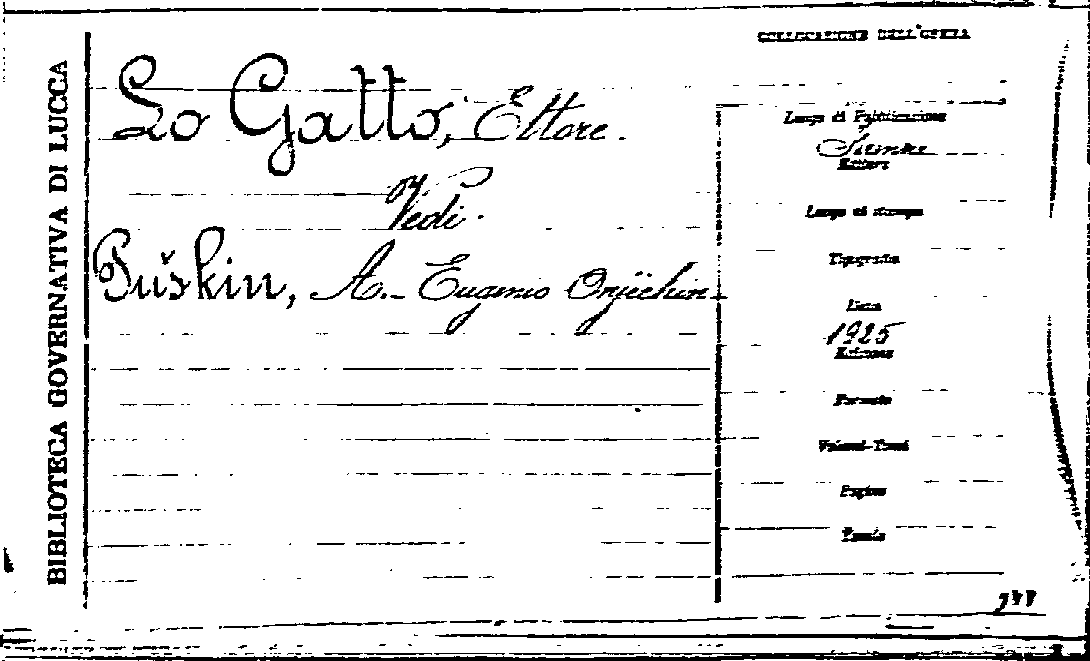 BIBLIOTECA GOVERNATIVA DI LUCCA
COLLOCAZIONE DELL'OPERA
Lo Gatto, Ettore.
Vedi.
Puškin, A. - Eugenio Onjèchin -
Luogo di Pubblicazione
Firenze
Editore
Luogo di stampa
Tipografia
Data
1925
Edizione
Formato
Volumi-Tomi
Pagine
Tavole